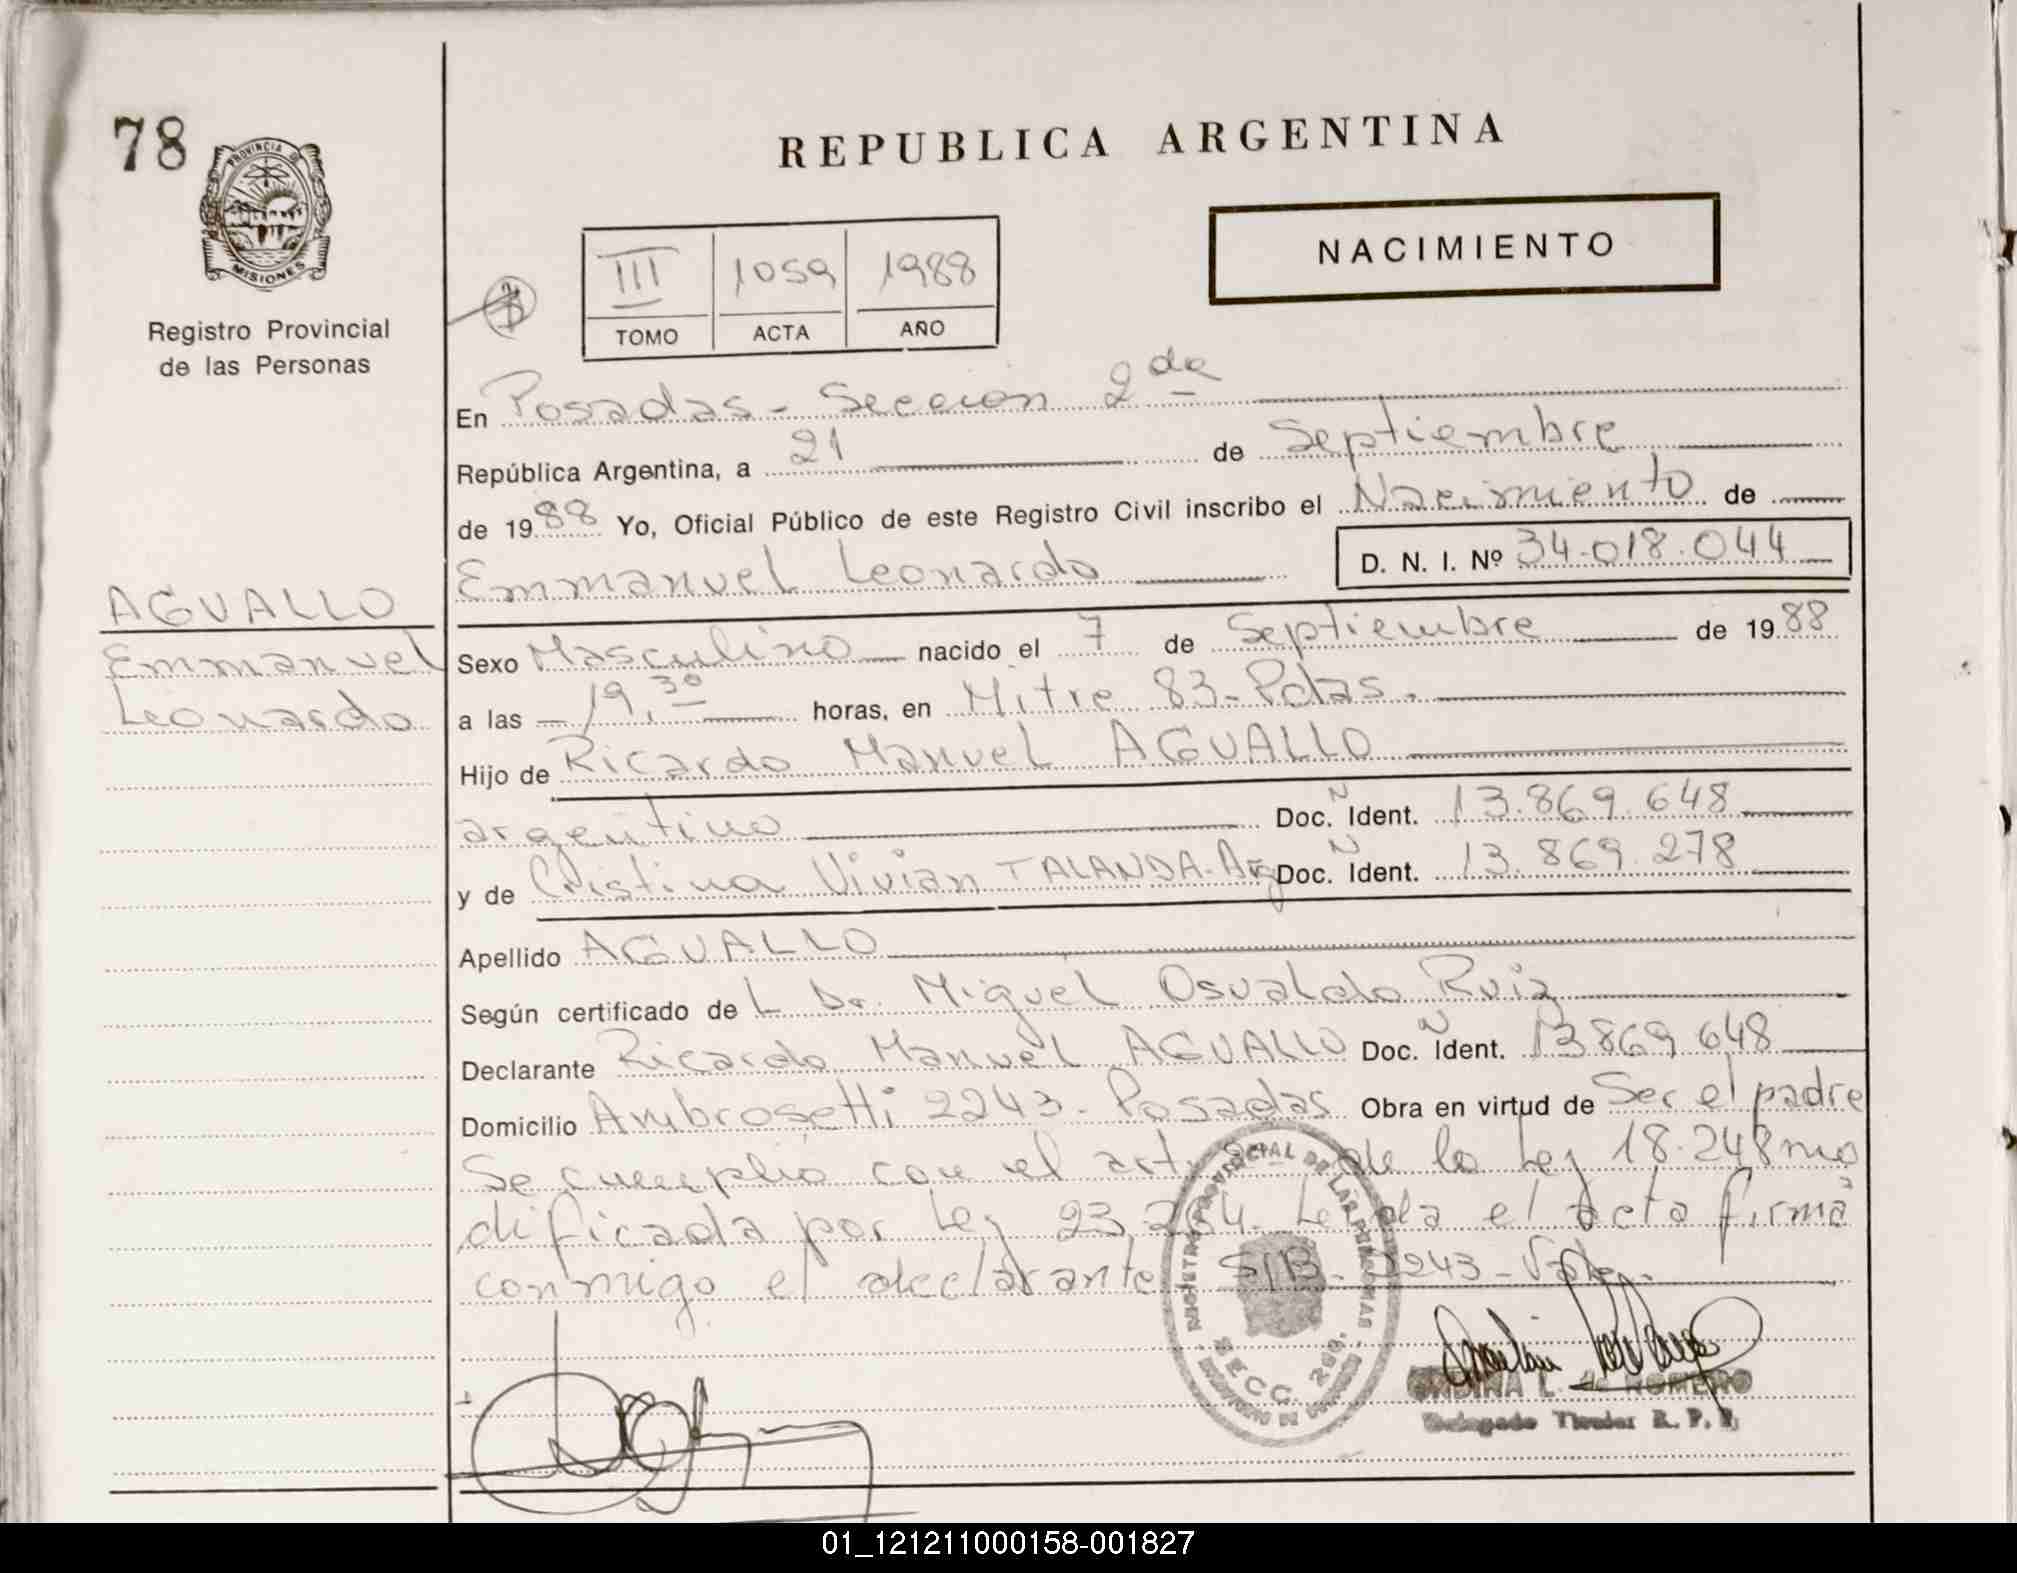 78
PROVINCIA DE
MISIONES
Registro Provincial
de las Personas
REPUBLICA ARGENTINA
NACIMIENTO
III 1059 1988
TOMO ACTA AÑO
En Posadas - Sección 2da
República Argentina, a 21 de Septiembre
de 1988 Yo, Oficial Público de este Registro Civil inscribo el Nacimiento de
Emmanuel Leonardo D. N. I. Nº 34.018.044
AGUALLO
Emmanuel
Leonardo
Sexo Masculino nacido el 7 de Septiembre de 1988
a las 19,30 horas, en Mitre 83 - Pdas.
Hijo de Ricardo Manuel AGUALLO
argentino Doc. N Ident. 13.869.648
y de Cristina Vivian TALANDA - Arg Doc. N Ident. 13.869.278
Apellido AGUALLO
Según certificado de L Dr. Miguel Osvaldo Ruiz
Declarante Ricardo Manuel AGUALLO Doc. N Ident. 13869648
Domicilio Ambrosetti 2243 - Posadas Obra en virtud de Ser el padre
Se cumplio con el art. de la Ley 18.248 mo
dificada por Ley 23.264. Leida el acta firma
conmigo el declarante S/B. 2243 - Vale.
REGISTRO PROVINCIAL DE LAS PERSONAS
SECC. 2da.
ONDINA L. de ROMERO
Delegado Titular R. P. P.
01_121211000158-001827